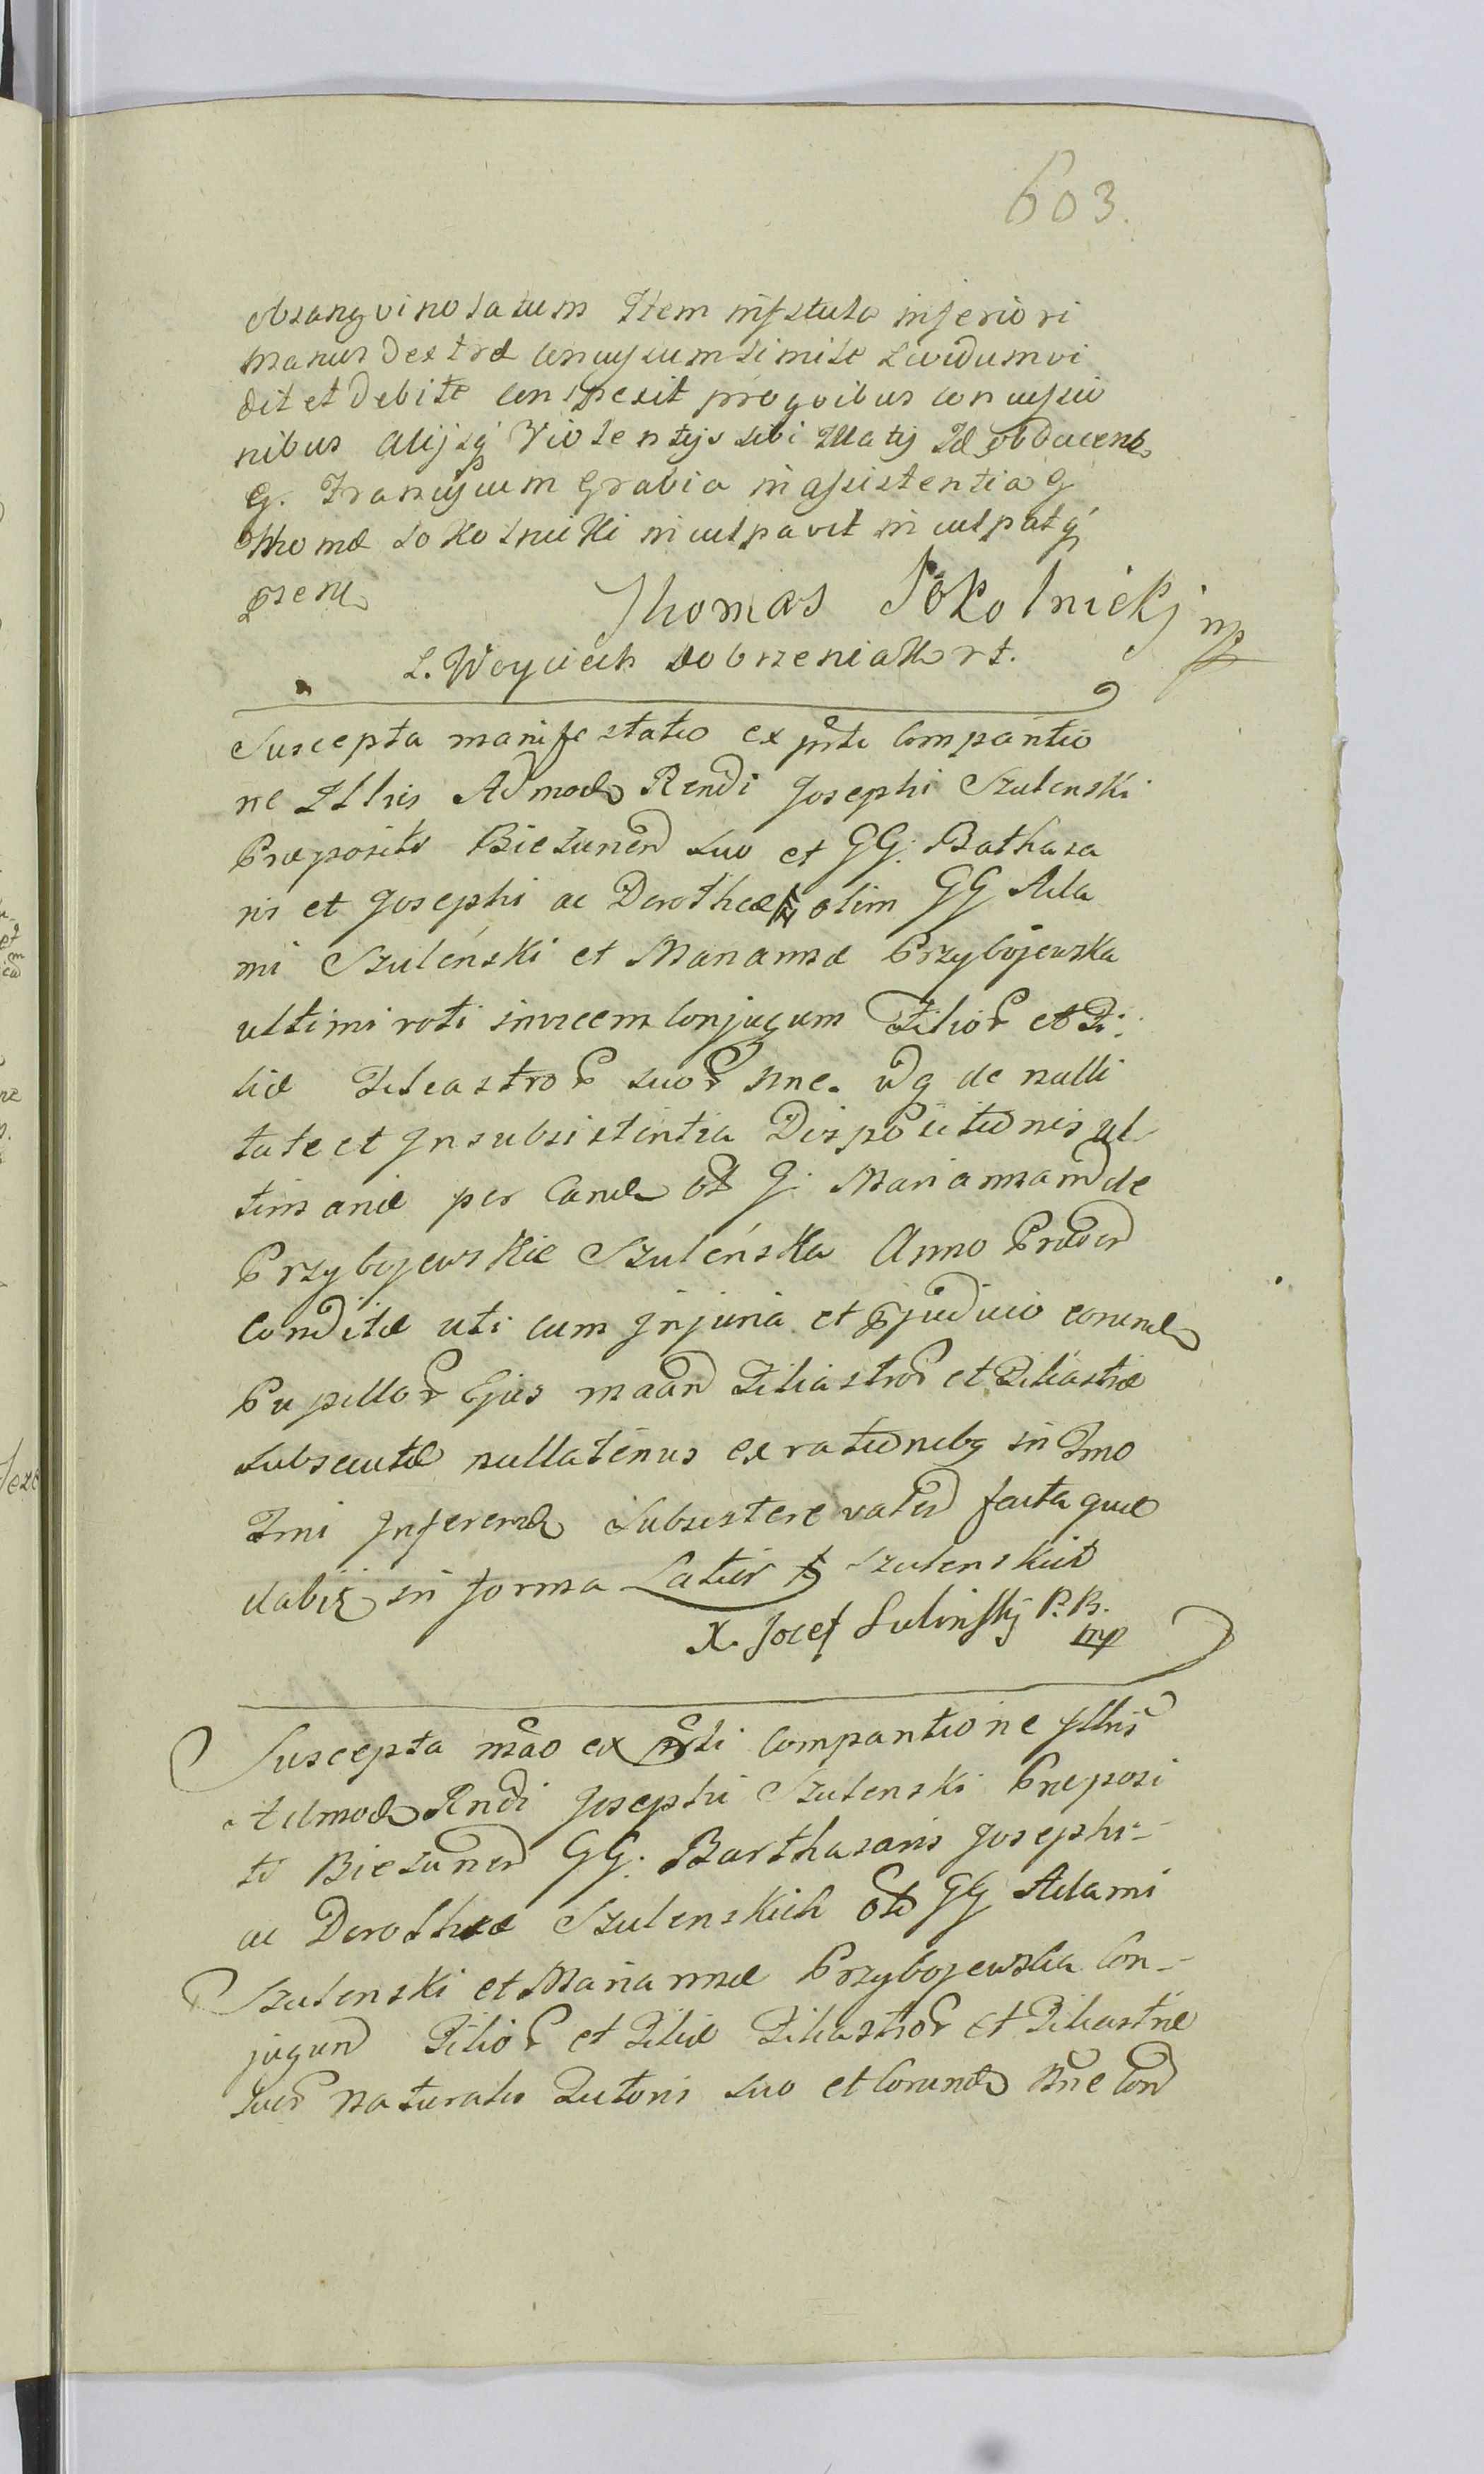 603.
obsangvinolatum Item in scutula inferiori
manus dextræ concussum simile Lividum vi
dit et debite conspexit pro qvibus concussio
nibus alijsq́ Violentijs sibi Illatis Id obducens
G. Franciscum Grabia in assistentia G
Thomæ Sokolnicki inculpavit inculpatq́
psens
Thomas Sokolnickj mp
L. Woyciech Dobrzeniak rt.
Suscepta manifestatio ex psti Comparitio
ne Illris Admod Rendi Josephi Szulenski
Præpositi Biezunen suo et GG. Balthasa
ris et Josephi ac Dorotheæ olim GG Ada
mi Szuleński et Mariannæ Przybojewska
ultimi voti invicem Conjugum Filior et Fi:
liæ Filiastror suor nne. de nulli
tate et Insubsistentia Dispositionis ul
timariæ per Eand G. Mariannam de
Przybojewskie Szuleńska Anno Præsen
Conditæ uti cum Injuria et pjudicio eorund
Pupillor Ejus Filiastror et Filiastræ
subsecutæ nullatenus ex rationibq in Fmo
Fmi Inferend Subsistere valen facta quæ
dabit in forma Latior Szulenskich
X. Jozef Sulinskj P. B.
mp
Suscepta mão ex psti Comparitione Illris
Admod Rndi Josephi Szulenski Præposi
ti Biezunen GG. Barthasaris Josephi
ac Dorotheæ Szulenskich ol GG Adami
Szulenski et Mariannæ Przybojewska Con-
jugum Filior et Filiæ Filiastror et Filiastræ
suor naturalis Tutoris suo et Eorund nne Con